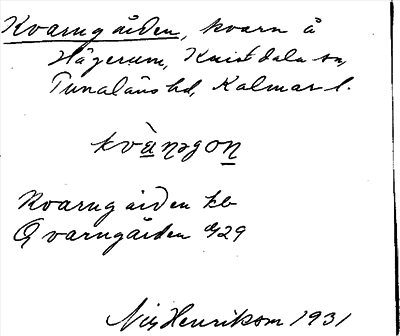 Kvarngården, kvarn å
Hägerum, Kristdala sn,
Tunaläns hd, Kalmar l.
kvà̱ŋəgo̱n
Kvarngården kb
Qvarngården
Nils Henrikson 1931